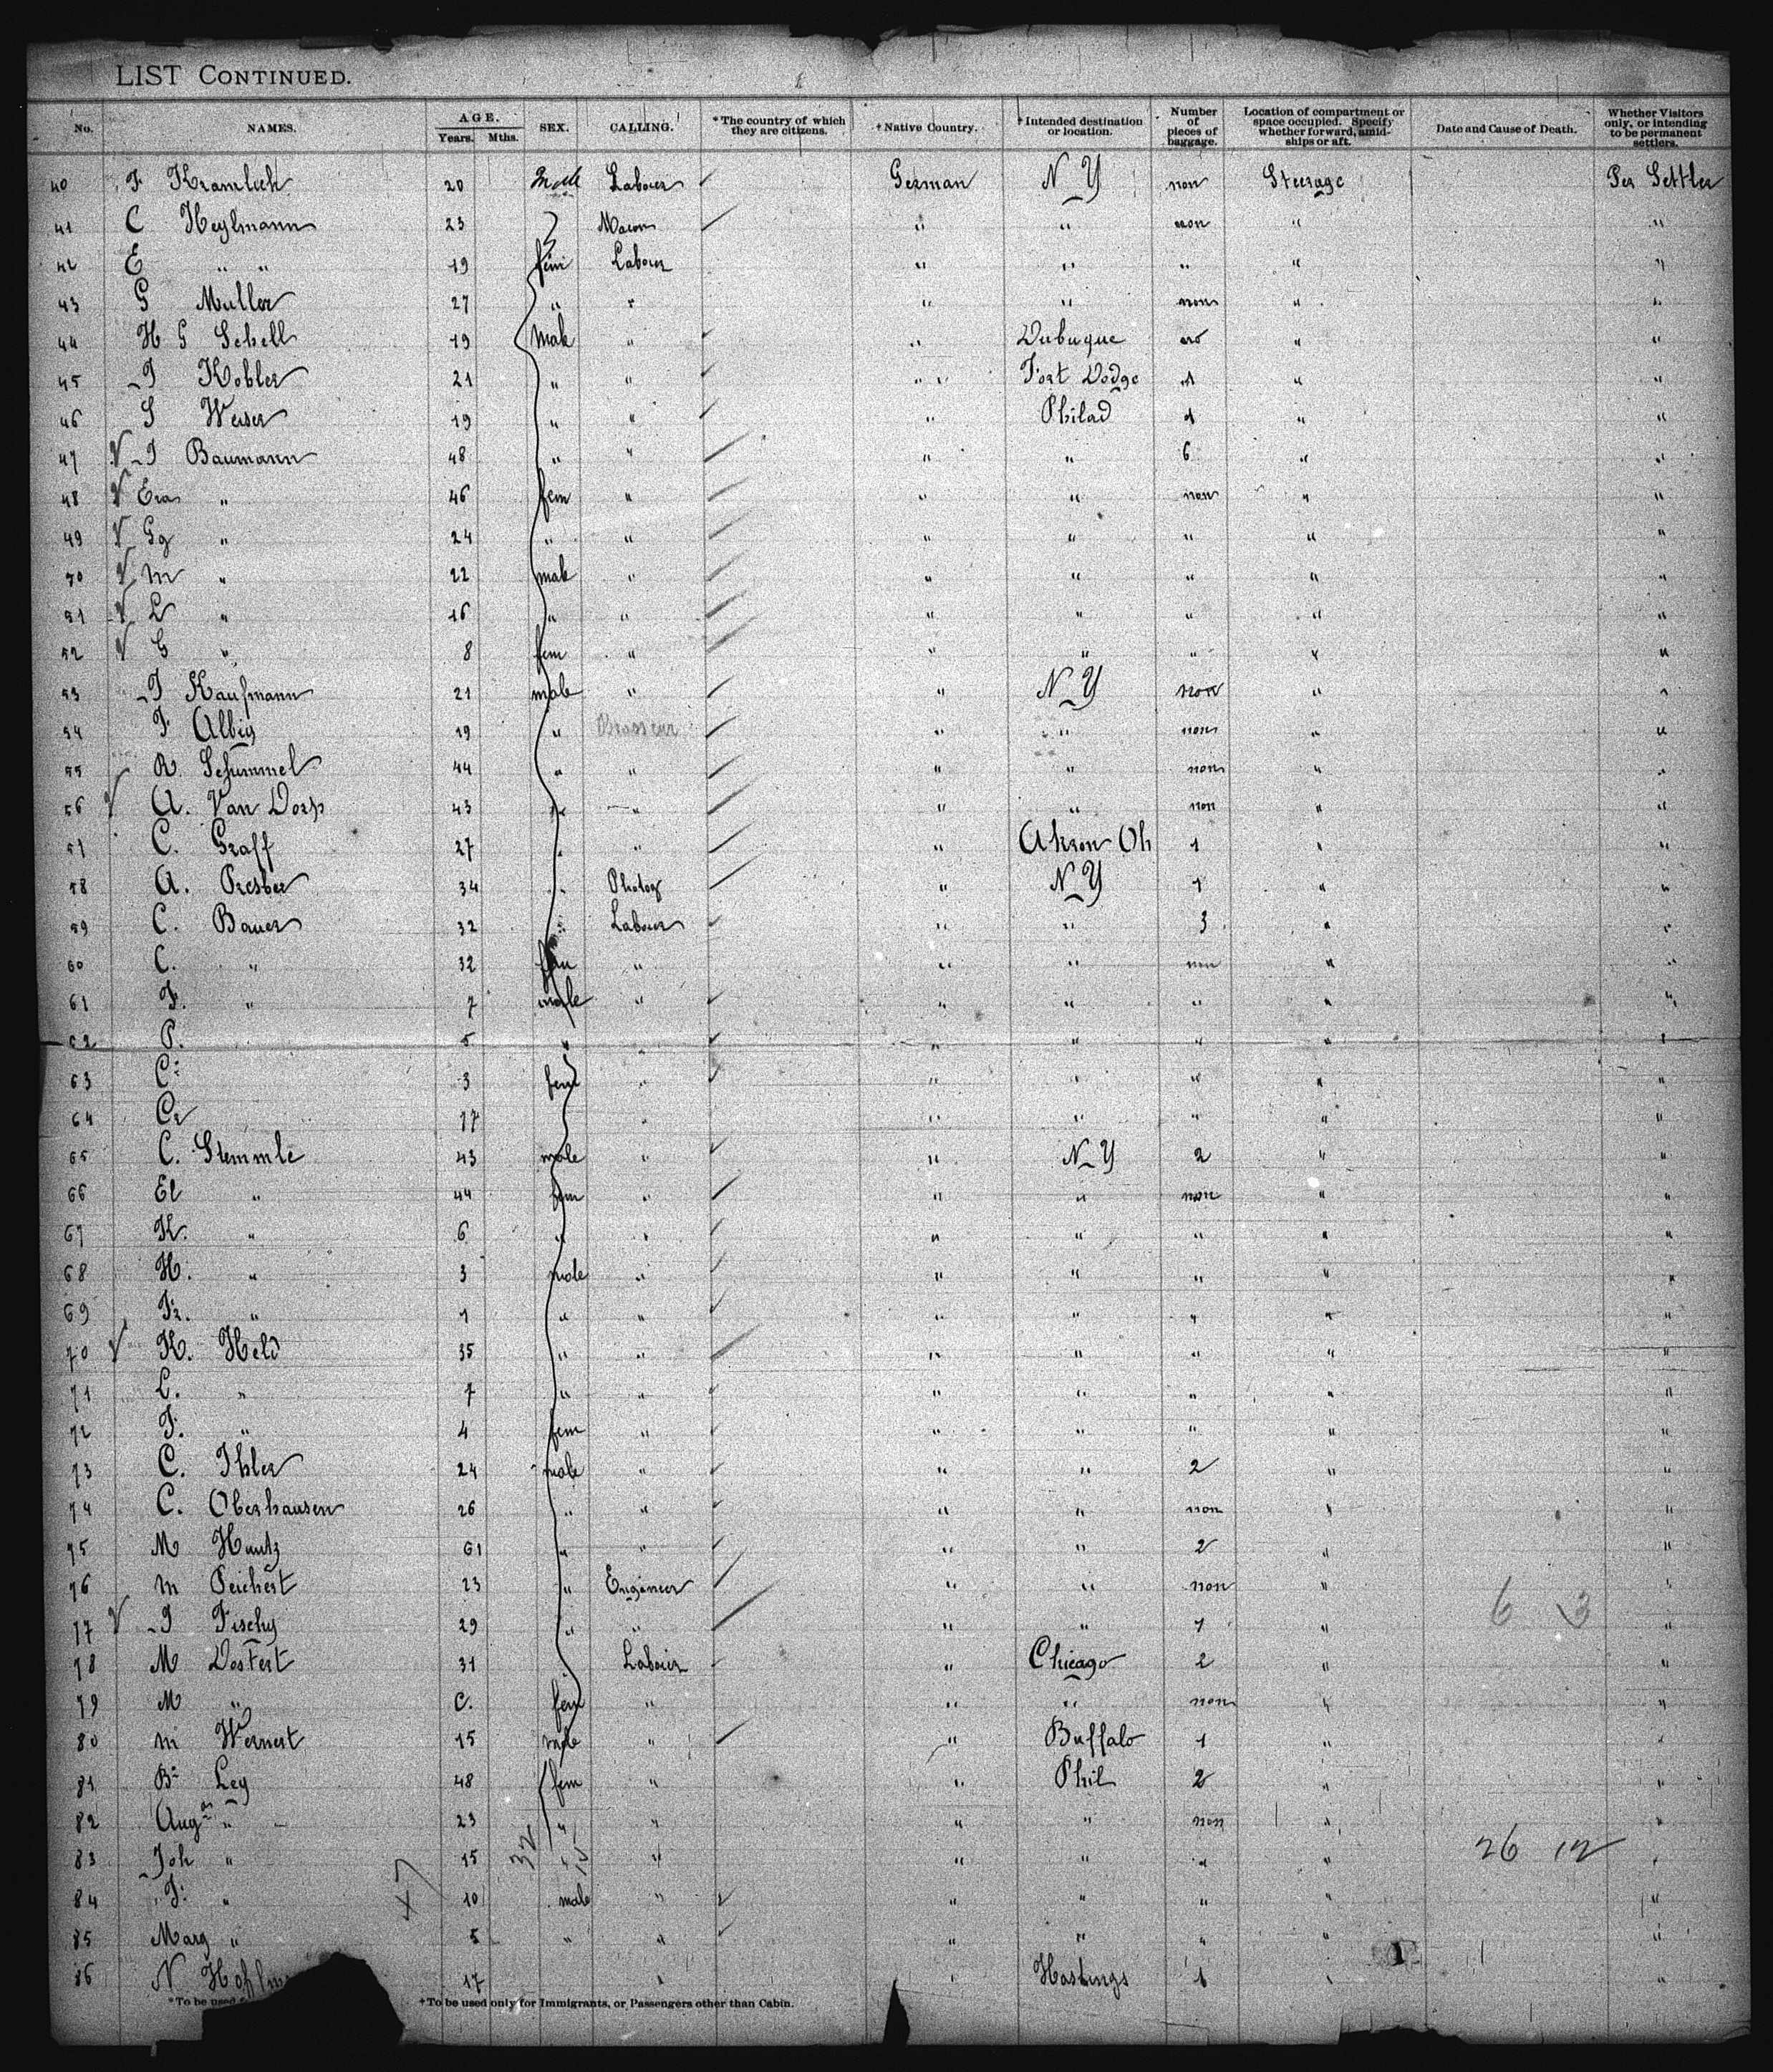 LIST CONTINUED.
No. NAMES. AGE. Years. Mths. SEX. CALLING. *The country of which they are citizens. +Native Country. +Intended destination or location. Number of pieces of baggage. Location of compartment or space occupied. Specify whether forward, amidships or aft. Date and Cause of Death. Whether Visitors only, or intending to be permanent settlers.
40 F Kramlich 20 male Labour German N Y non Steerage Per Settler
41 C Heylmann 23 " Mason " " non " "
42 E " " 19 fem Labour " " " " "
43 G Muller 27 " " " " non " "
44 H G Schell 19 male " " Dubuque no " "
45 J Kobler 21 " " " Fort Dodge 1 " "
46 S Weiser 19 " " " Philad 1 " "
47 J Baumann 48 " " " " 6 " "
48 Eva " 46 fem " " " non " "
49 Gg " 24 " " " " " " "
50 M " 22 male " " " " " "
51 L " 16 " " " " " " "
52 G " 8 fem " " " " " "
53 J Kaufmann 21 male " " N Y non " "
54 F Albig 19 " Brasseur " " non " "
55 R Schummel 44 " " " " non " "
56 A. Van Dorp 43 " " " " non " "
57 C. Graff 27 " " " Akron Oh 1 " "
58 A. Presber 34 " Photog " N Y 1 " "
59 C. Bauer 32 " Labour " " 3 " "
60 C. " 32 fem " " " non " "
61 F. " 7 male " " " " " "
62 P. 5 " " " " " " "
63 C: 3 fem " " " " " "
64 17 " " " " " "
65 C. Stemmle 43 male " " N Y 2 " "
66 El " 44 fem " " " non " "
67 K. " 6 " " " " " " "
68 H. " 3 male " " " " " "
69 Fr. " 1 " " " " " " "
70 K. Held 35 " " " " " " "
71 L. " 7 " " " " " " "
72 F. " 4 fem " " " " " "
73 C. Ihler 24 male " " " 2 " "
74 C. Oberhausen 26 " " " " non " "
75 M Hautz 61 " " " " 2 " "
76 M Peichert 23 " Engineer " " non " "
6 3
77 J Fischy 29 " " " " 1 " "
78 M Dostert 31 Labour " Chicago 2 " "
79 M " C. fem " " " non " "
80 M Wernert 15 male " " Buffalo 1 " "
81 Ley 48 fem " " Phil 2 " "
82 Aug " 23 " " " " non " "
83 Joh " 15 " " " " " " "
32 15
26 12
84 F. " 10 male " " " " " "
47
85 Marg " 5 " " " " " " "
86 N 17 " " Hastings 1 " "
*To be used +To be used only for Immigrants, or Passengers other than Cabin.